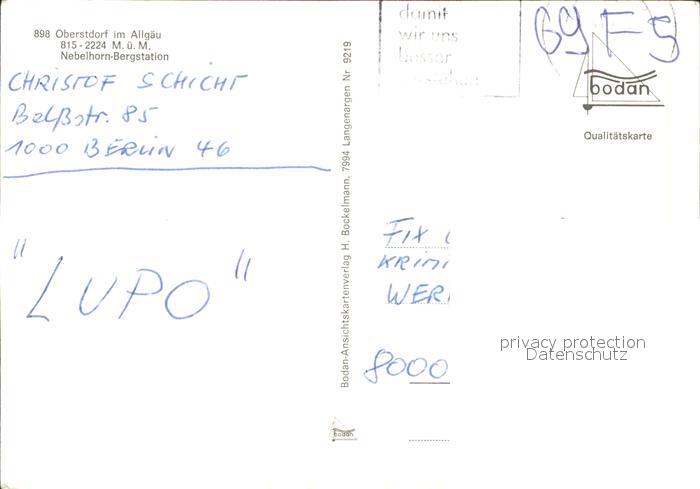 898 Oberstdorf im Allgäu
815-2224 M. ü. M.
Nebelhorn-Bergstation
CHRISTOF SCHICHT
Belßstr. 85
1000 BERLIN 46
"LUPO"
Bodan-Ansichtskartenverlag H. Bockelmann, 7994 Langenargen Nr. 9219
bodan
damit
wir uns
besser
69F5
bodan
Qualitätskarte
FIX
KRIMI
WER
8000
privacy protection
Datenschutz